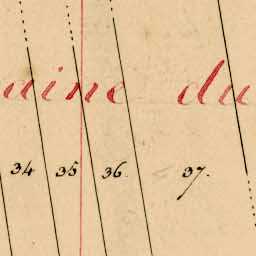 aine du
34 35 36. 37.